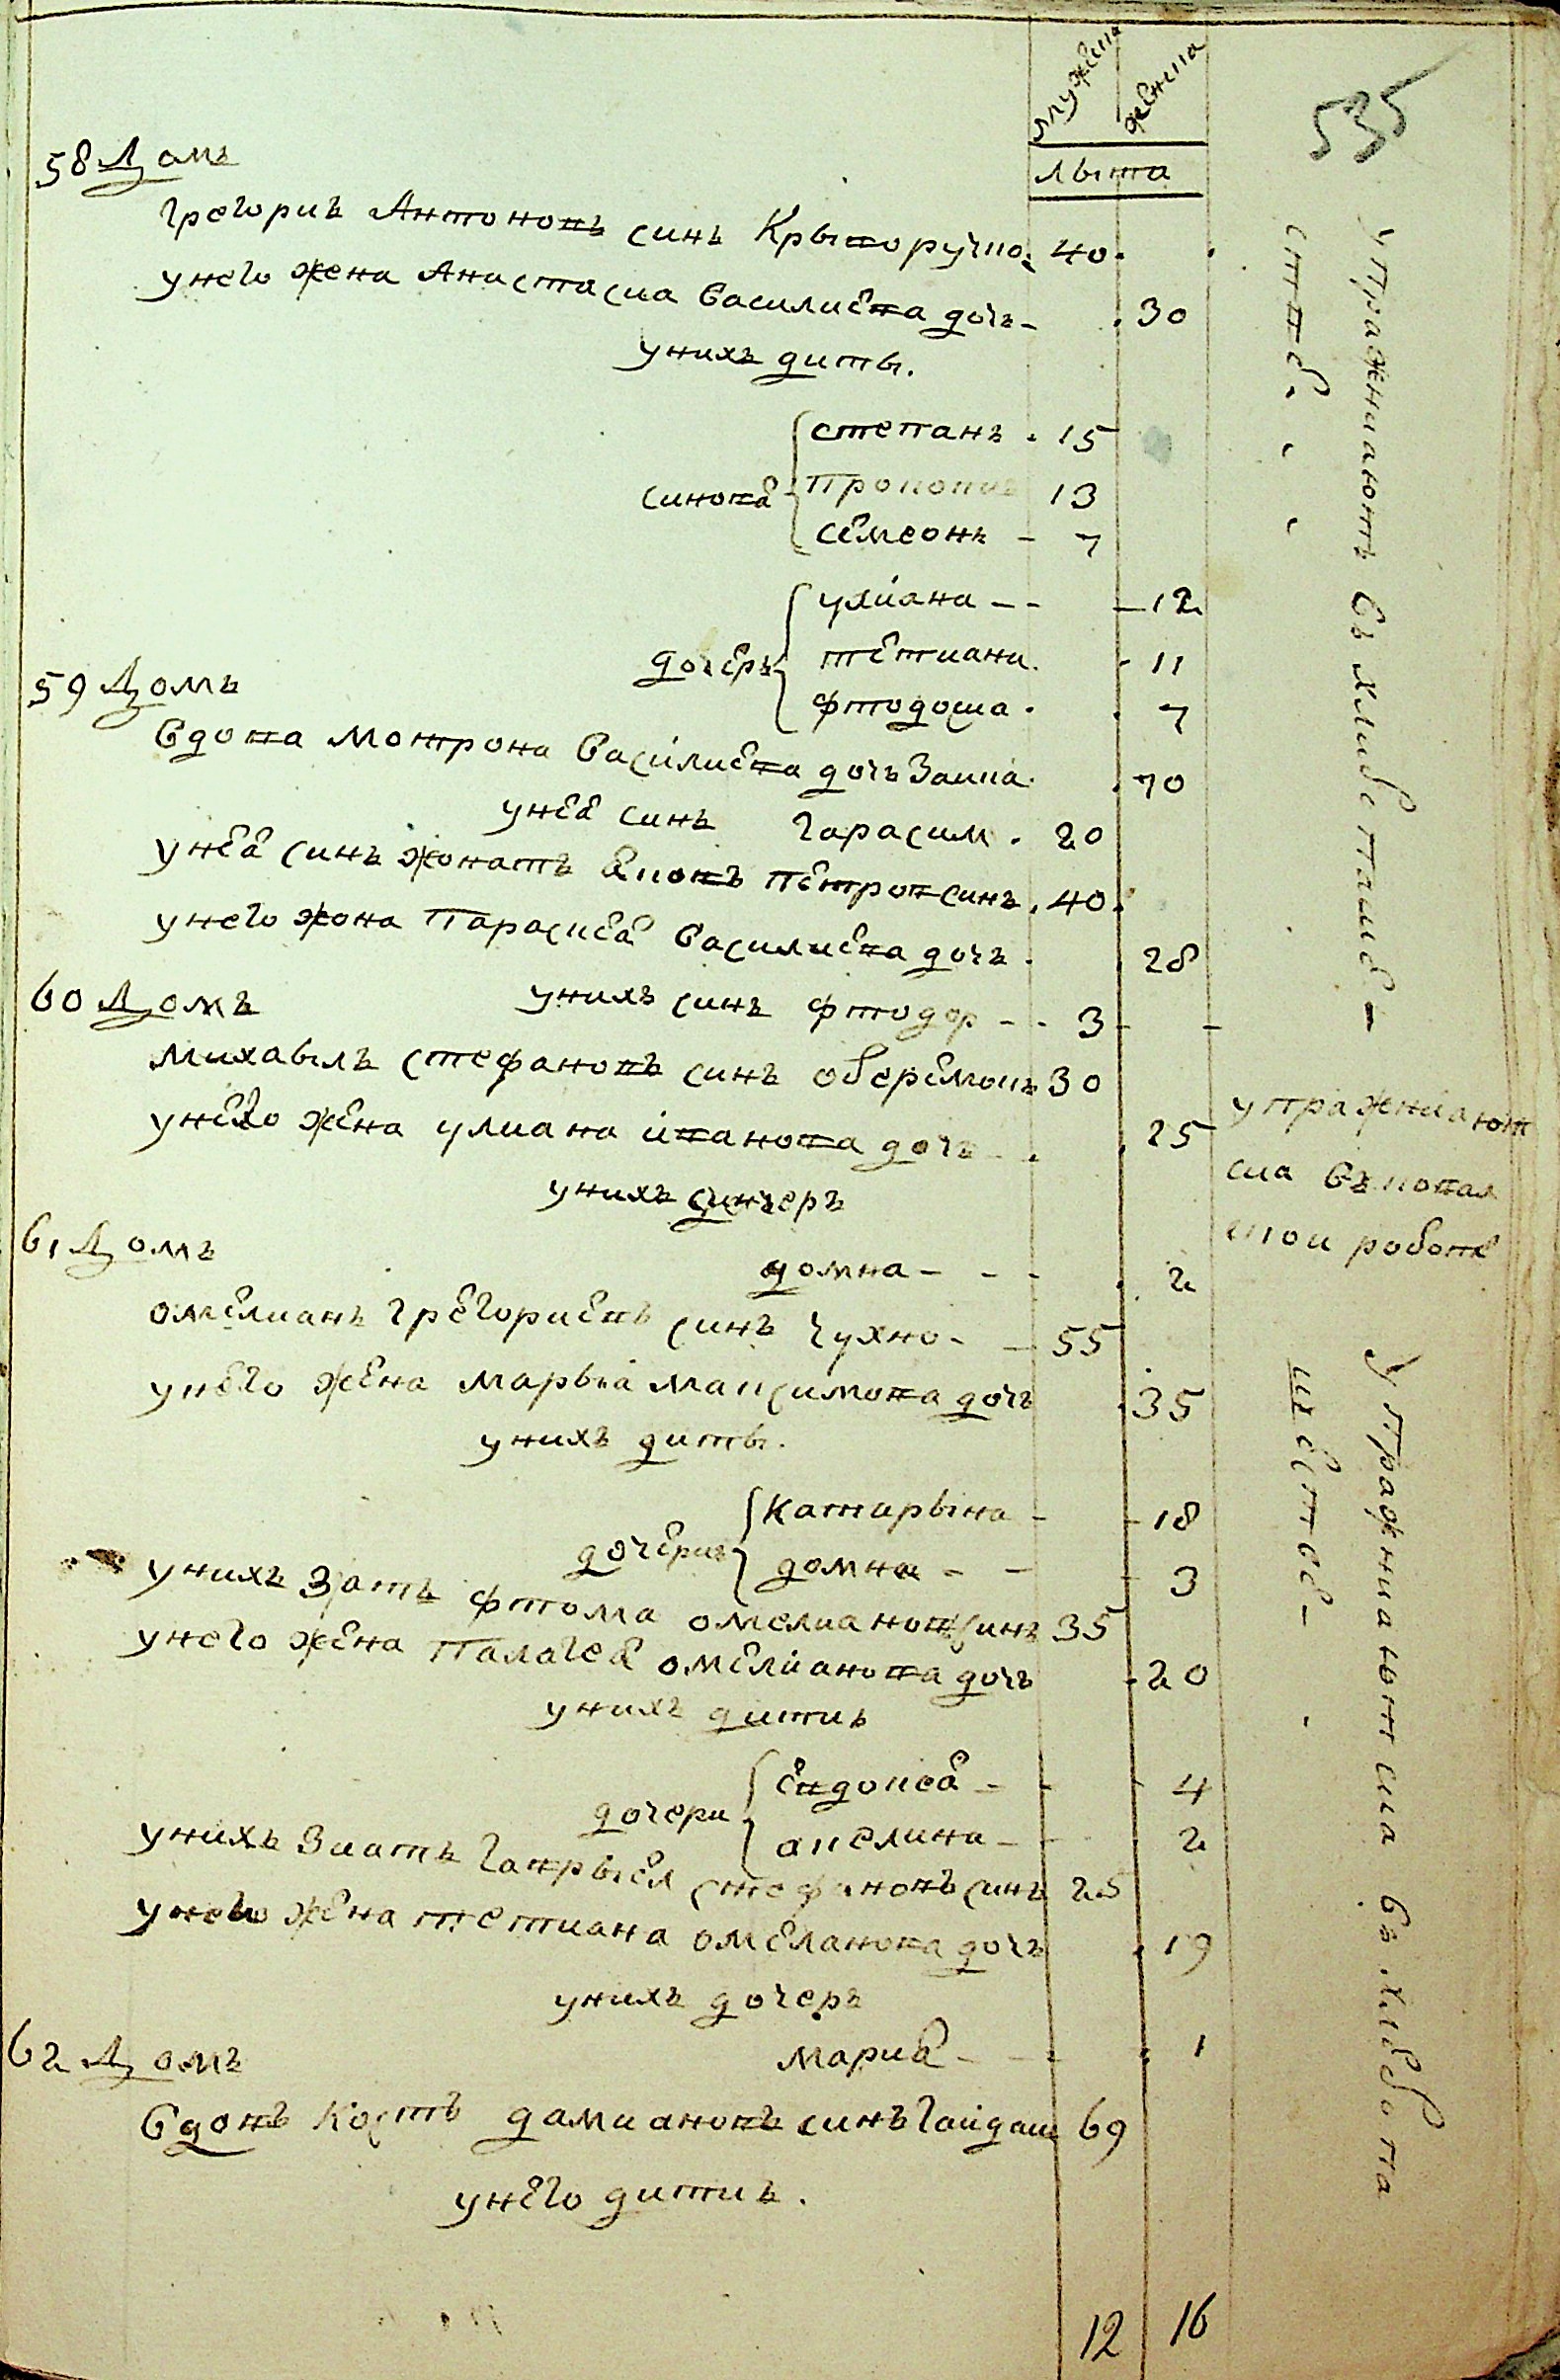 мужска женска
535
лѣта
58 Домъ
Грегорий Антоновъ синъ Крыворучко 40
у него жена Анастасиа Василиева дочъ 30
у нихъ диты.
синове
степанъ 15
прокопий 13
семеонъ 7
дочеръ
улиана 12
тетиана 11
фтодосиа 7
59 Домъ
Вдова Мотрона Василиева дочъ Заика 70
у неe синъ Гарасим 20
у нее синъ жонатъ Яковъ Петров синъ 40
у него жона Параскеа Василиева дочъ 28
у нихъ синъ фтодор 3
60 Домъ
Михаылъ стефановъ синъ оберемокъ 30
у него жена улиана иванова дочъ 25
у нихъ дочеръ
домна 2
61 Домъ
омелианъ Грегориевъ синъ Чухно 55
у него жена марыа максимова дочъ 35
у нихъ диты.
дочери
Катарына 18
домна 3
у нихъ зять фтома омелианов синъ 35
у него жена Палагеа омелианова дочъ 20
у нихъ дити
дочери
евдокеа 4
акелина 2
у нихъ зиатъ Гаврыел стефановъ синъ 25
у него жена тетиана омеланова дочъ 19
у нихъ дочеръ
мариа 1
62 Домъ
Вдовъ Костъ дамиановъ синъ Гайдаш 69
у него дити.
12 16
упражниаютъ въ хлибопаше-
стве
упражниают
сиа въ ковал
ской работе
Упражниаютсиа въ хлибопа
шестве